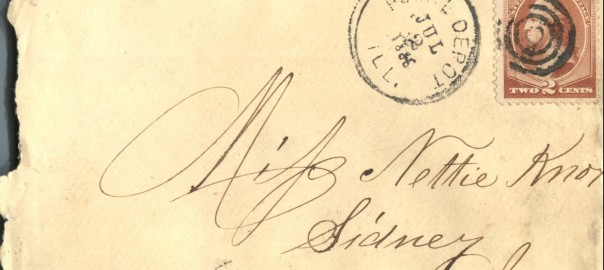 DEPOT
JUL
2
ILL.
TWO 2 CENTS
Miss Nettie Knox
Sidney